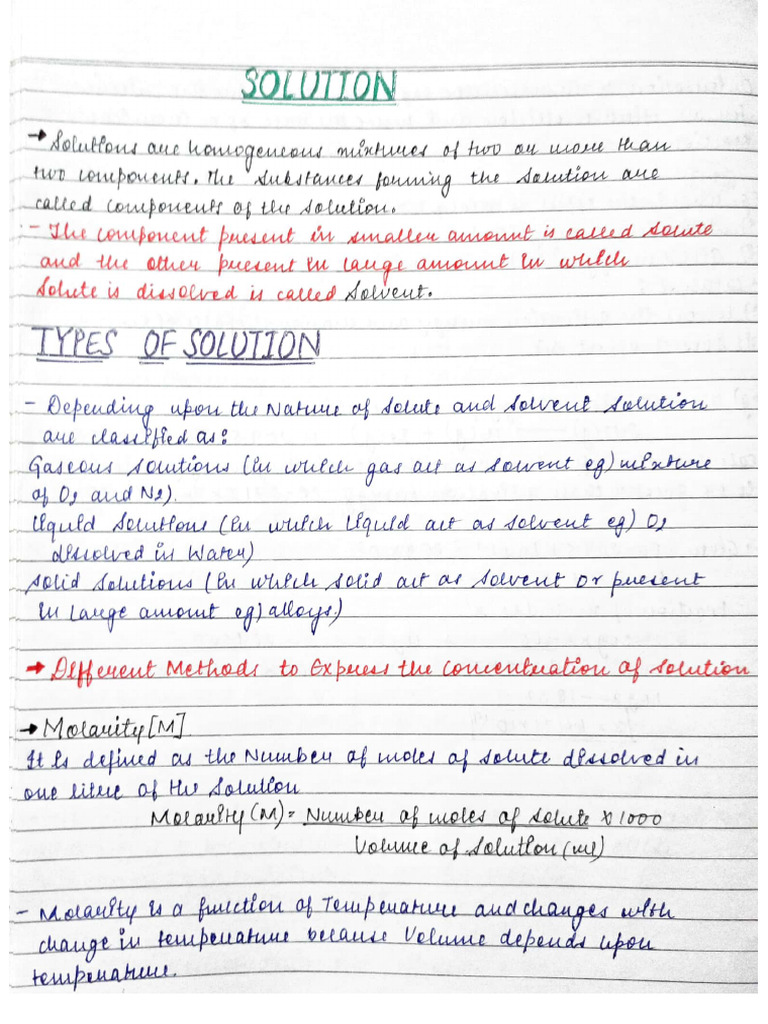 SOLUTION
→ Solutions are homogeneous mixtures of two or more than
two components. The substances forming the solution are
called components of the solution.
- The component present in smaller amount is called solute
and the other present in large amount in which
solute is dissolved is called Solvent.
TYPES OF SOLUTION
- Depending upon the Nature of solute and solvent solution
are classified as:
Gaseous solutions (in which gas act as solvent eg) mixture
of O2 and N2).
liquid solutions (in which liquid act as solvent eg) O2
dissolved in Water)
solid solutions (in which solid act as solvent or present
in large amount eg) alloys)
→ Different Methods to Express the concentration of solution
→ Molarity [M]
It is defined as the Number of moles of solute dissolved in
one litre of the solution
Molarity (M) = Number of moles of solute × 1000
Volume of solution (ml)
- Molarity is a function of Temperature and changes with
change in temperature because Volume depends upon
temperature.